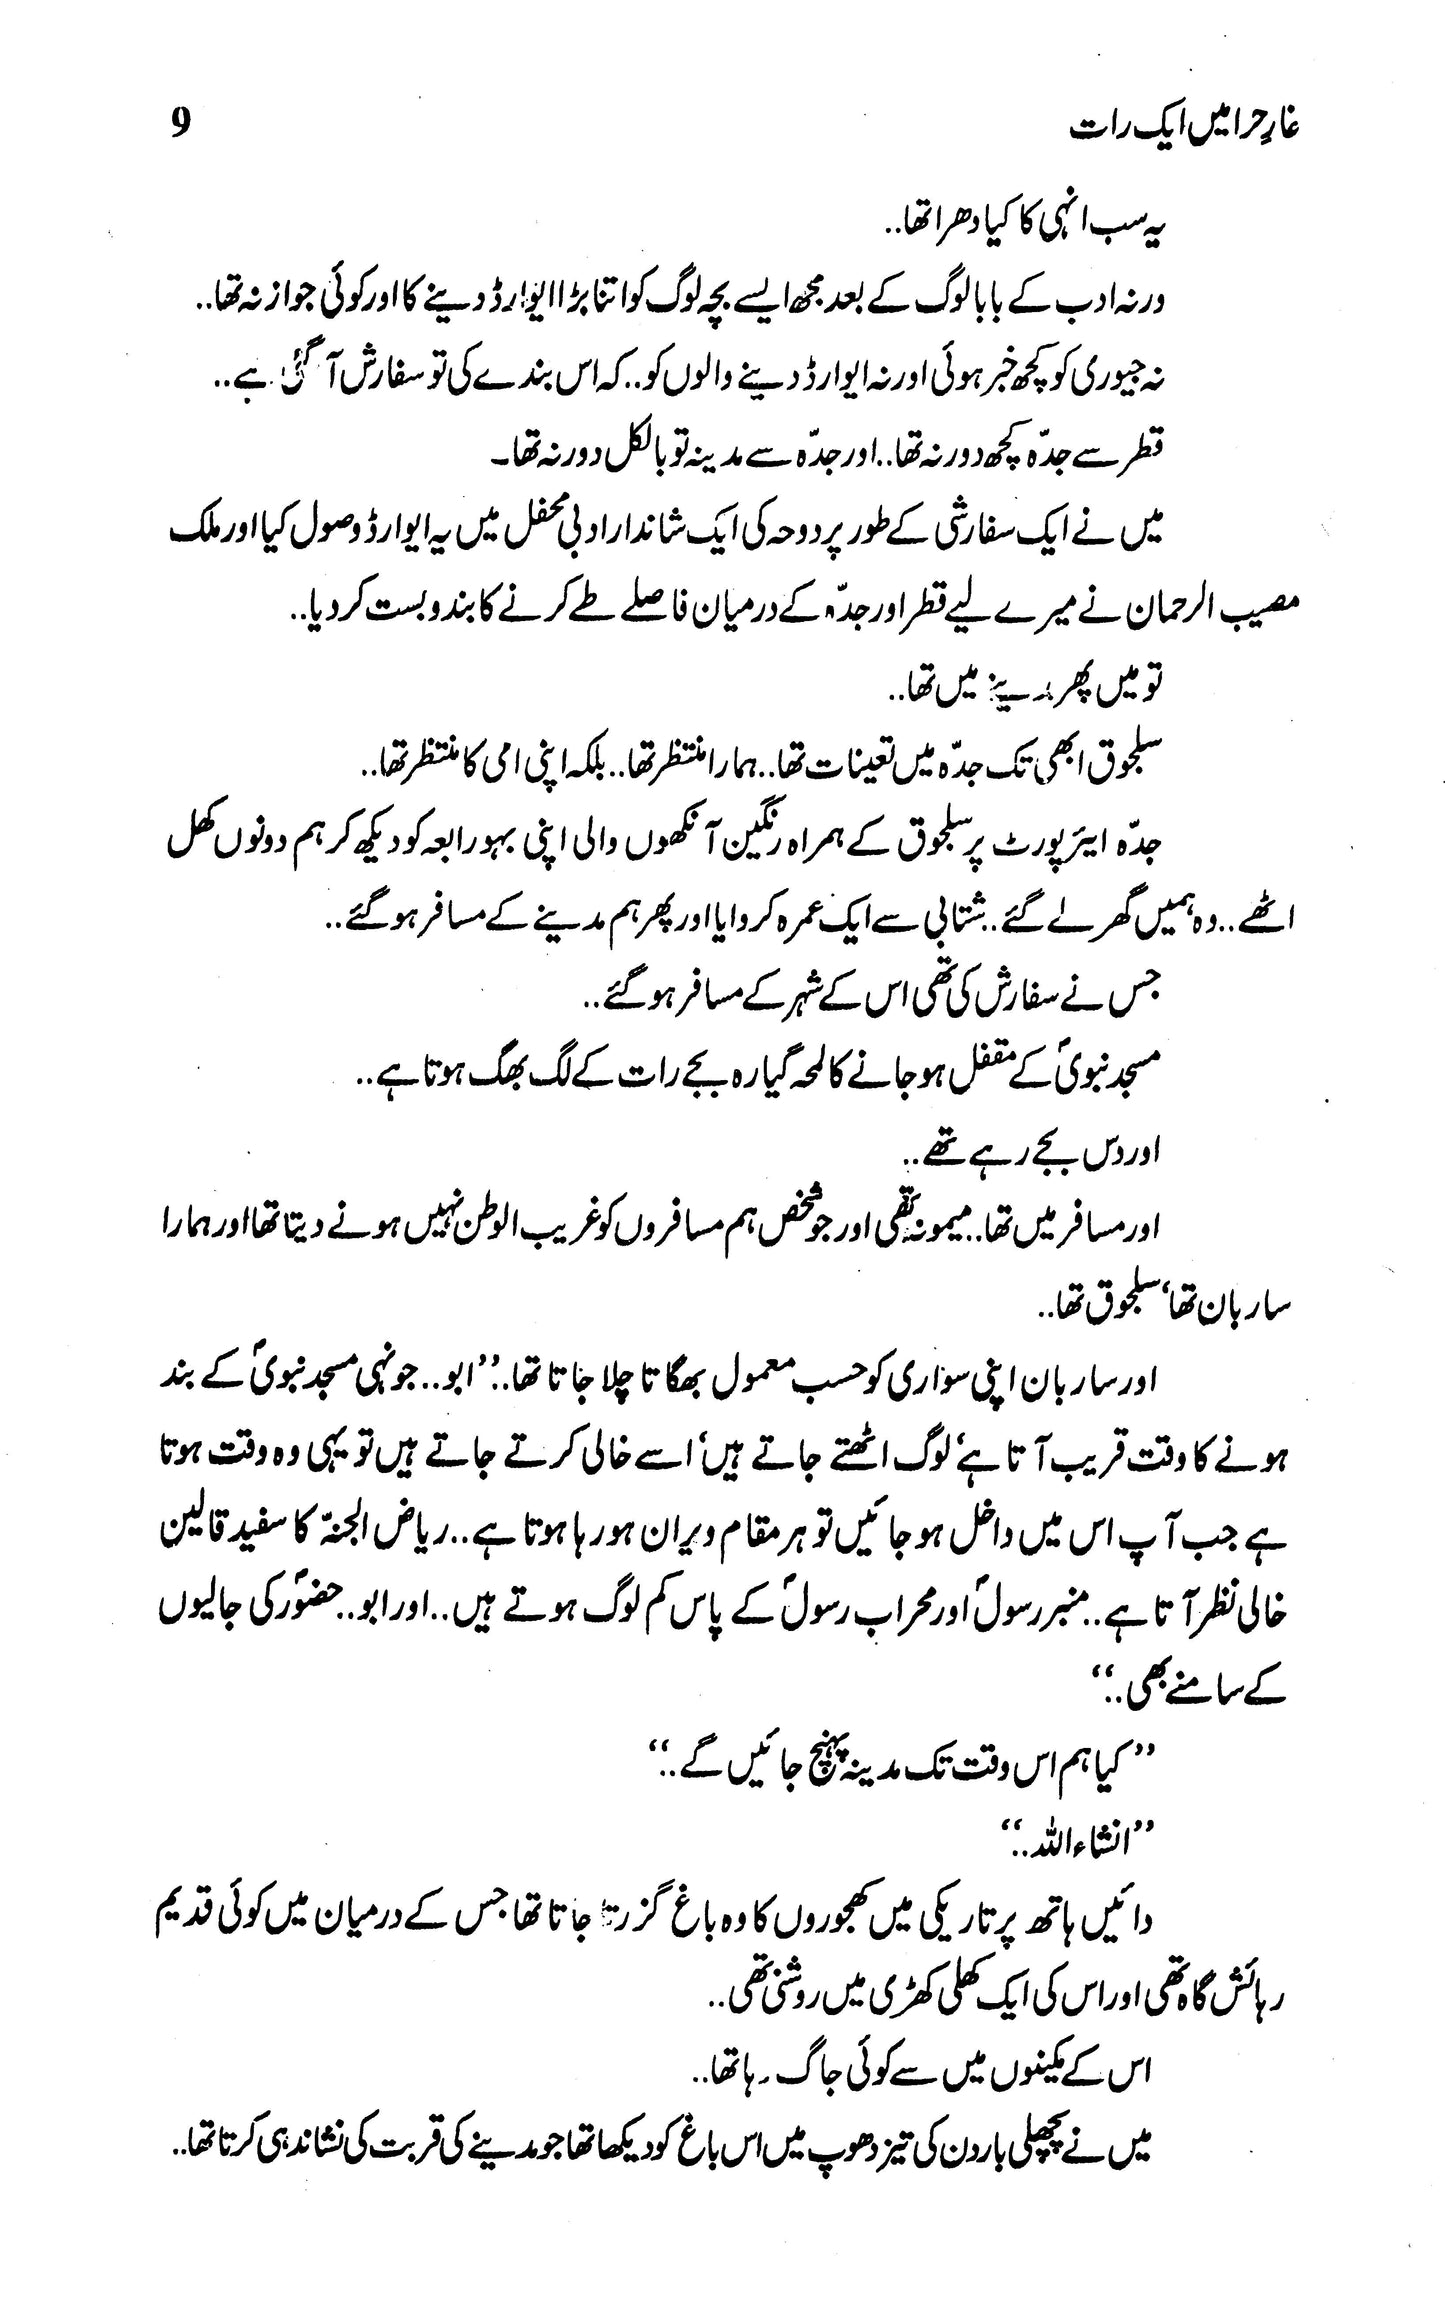 غارِ حرا میں ایک رات 9
یہ سب انہی کا کیا دھرا تھا..
ورنہ ادب کے بابا لوگ کے بعد مجھ ایسے بچہ لوگ کو اتنا بڑا ایوارڈ دینے کا اور کوئی جواز نہ تھا..
نہ جیوری کو کچھ خبر ہوئی اور نہ ایوارڈ دینے والوں کو.. کہ اس بندے کی تو سفارش آ گئی ہے..
قطر سے جدّہ کچھ دور نہ تھا.. اور جدّہ سے مدینہ تو بالکل دور نہ تھا۔
میں نے ایک سفارشی کے طور پر دوحہ کی ایک شاندار ادبی محفل میں یہ ایوارڈ وصول کیا اور ملک
مصیب الرحمان نے میرے لیے قطر اور جدّہ کے درمیان فاصلے طے کرنے کا بندوبست کر دیا..
تو میں پھر مدینے میں تھا..
سلجوق ابھی تک جدّہ میں تعینات تھا.. ہمارا منتظر تھا.. بلکہ اپنی امی کا منتظر تھا..
جدّہ ایئرپورٹ پر سلجوق کے ہمراہ رنگین آنکھوں والی اپنی بہو رابعہ کو دیکھ کر ہم دونوں کھل
اٹھے.. وہ ہمیں گھر لے گئے.. شتابی سے ایک عمرہ کروایا اور پھر ہم مدینے کے مسافر ہو گئے..
جس نے سفارش کی تھی اس کے شہر کے مسافر ہو گئے..
مسجد نبویؐ کے مقفل ہو جانے کا لمحہ گیارہ بجے رات کے لگ بھگ ہوتا ہے..
اور دس بجے رہے تھے..
اور مسافر میں تھا.. میمونہ تھی اور جو شخص ہم مسافروں کو غریب الوطن نہیں ہونے دیتا تھا اور ہمارا
ساربان تھا‘ سلجوق تھا..
اور ساربان اپنی سواری کو حسب معمول بھگاتا چلا جاتا تھا.. ’’ابو.. جونہی مسجد نبویؐ کے بند
ہونے کا وقت قریب آتا ہے‘ لوگ اٹھتے جاتے ہیں‘ اسے خالی کرتے جاتے ہیں تو یہی وہ وقت ہوتا
ہے جب آپ اس میں داخل ہو جائیں تو ہر مقام ویران ہو رہا ہوتا ہے.. ریاض الجنہّ کا سفید قالین
خالی نظر آتا ہے.. منبر رسولؐ اور محراب رسولؐ کے پاس کم لوگ ہوتے ہیں.. اور ابو.. حضورؐ کی جالیوں
کے سامنے بھی..‘‘
’’کیا ہم اس وقت تک مدینہ پہنچ جائیں گے..‘‘
’’انشاءاللہ..‘‘
دائیں ہاتھ پر تاریکی میں کھجوروں کا وہ باغ گزرتا جاتا تھا جس کے درمیان میں کوئی قدیم
رہائش گاہ تھی اور اس کی ایک کھلی کھڑی میں روشنی تھی..
اس کے مکینوں میں سے کوئی جاگ رہا تھا..
میں نے پچھلی بار دن کی تیز دھوپ میں اس باغ کو دیکھا تھا جو مدینے کی قربت کی نشاندہی کرتا تھا..